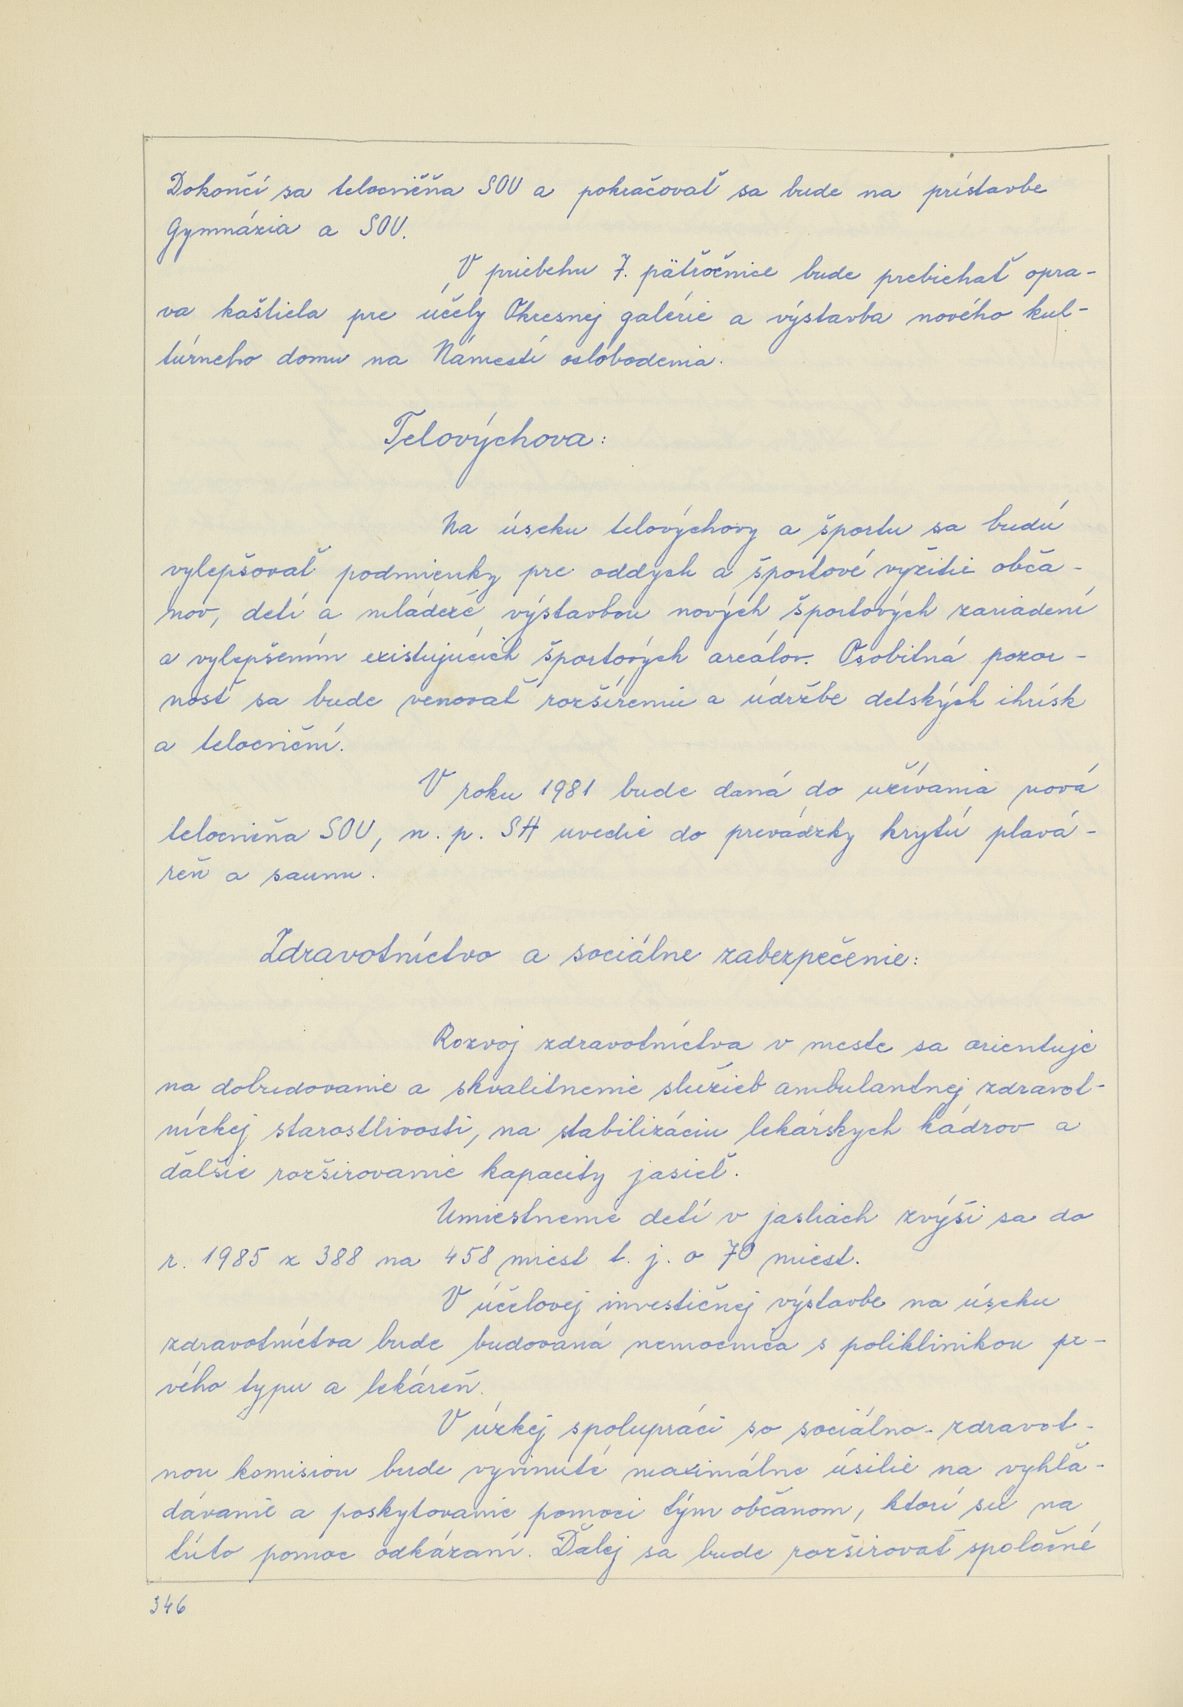 Dokončí sa telocvičňa SOU a pokračovať sa bude na prístavbe
Gymnázia a SOU.
V priebehu 7. päťročnice bude prebiehať opra-
va kaštiela pre účely Okresnej galérie a výstavba nového kul-
túrneho domu na Námestí oslobodenia.
Telovýchova:
Na úseku telovýchovy a športu sa budú
vylepšovať podmienky pre oddych a športové vyžitie obča-
nov, detí a mládeže výstavbou nových športových zariadení
a vylepšením existujúcich športových areálov. Osobitná pozor-
nosť sa bude venovať rozšíreniu a údržbe detských ihrísk
a telocviční.
V roku 1981 bude daná do užívania nová
telocvičňa SOU, n. p. SH uvedie do prevádzky krytú plavá-
reň a saunu.
Zdravotníctvo a sociálne zabezpečenie:
Rozvoj zdravotníctva v meste sa orientuje
na dobudovanie a skvalitnenie služieb ambulantnej zdravot-
níckej starostlivosti, na stabilizáciu lekárskych kádrov a
ďalšie rozširovanie kapacity jasieľ.
Umiestnenie detí v jasliach zvýši sa do
r. 1985 z 388 na 458 miest t. j. o 70 miest.
V účelovej investičnej výstavbe na úseku
zdravotníctva bude budovaná nemocnica s poliklinikou pr-
vého typu a lekáreň.
V úzkej spolupráci so sociálno-zdravot-
nou komisiou bude vyvinuté maximálne úsilie na vyhľa-
dávanie a poskytovanie pomoci tým občanom, ktorí sú na
túto pomoc odkázaní. Ďalej sa bude rozširovať spoločné
346